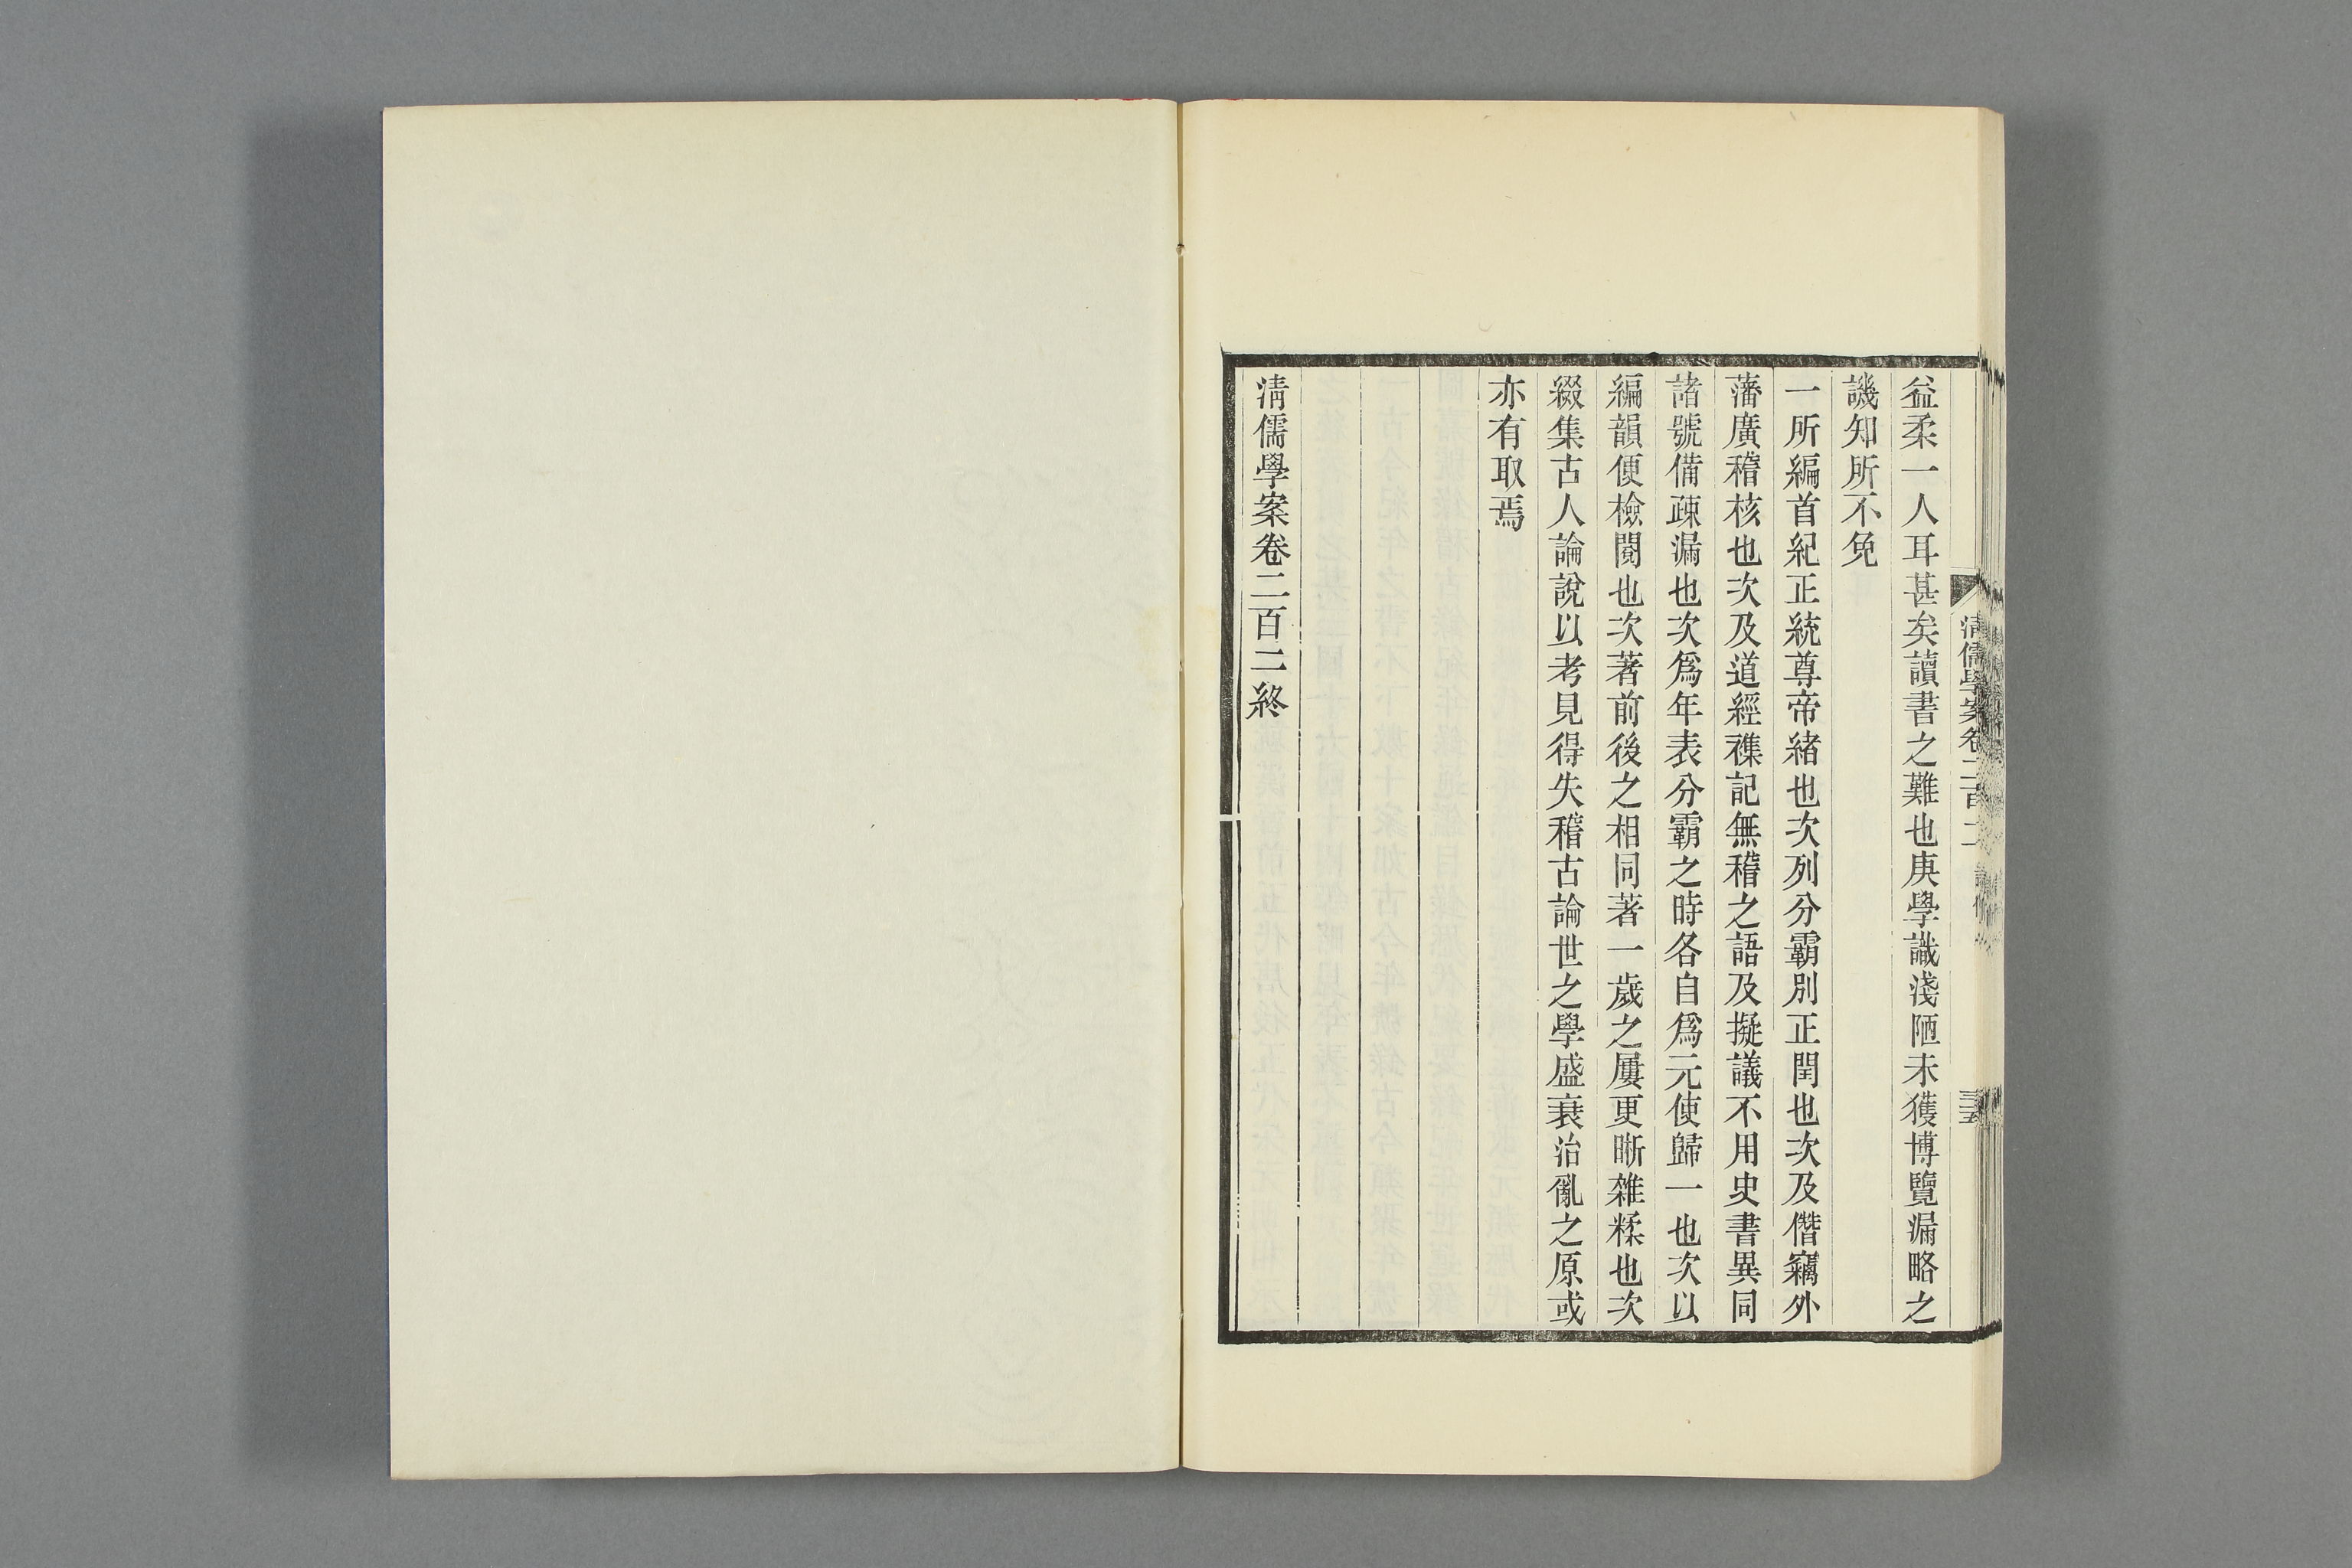 益柔一人耳甚矣讀書之難也庚學識淺陋未獲博覽漏略之
譏知所不免
一所編首紀正統尊帝緒也次列分霸別正閏也次及僭竊外
藩廣稽核也次及道經襍記無稽之語及擬議不用史書異同
諸號備疎漏也次爲年表分霸之時各自爲元使歸一也次以
編韻便檢閱也次著前後之相同著一歲之屢更晰雜糅也次
綴集古人論說以考見得失稽古論世之學盛衰治亂之原或
亦有取焉
淸儒學案卷二百二終
淸儒學案卷二百二
三五